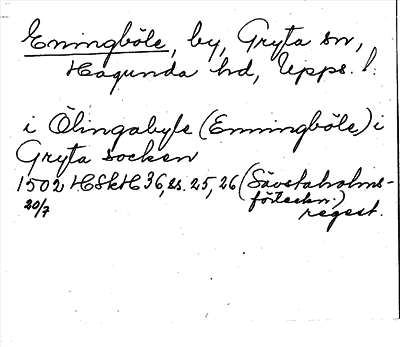 Enningböle, by, Gryta sn,
Hagunda hd, Upps. l.
i Ölingabyle (Enningböle) i
Gryta socken
1502 HSkH 36, s. 25, 26 (Sävstaholms-
20/7 förteckn.)
regest.